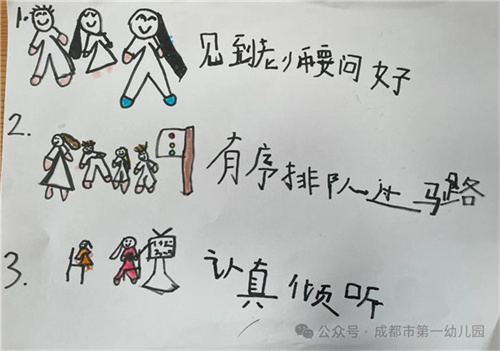 1. 见到老师要问好
2. 有序排队过马路
3. 认真倾听
公众号·成都市第一幼儿园